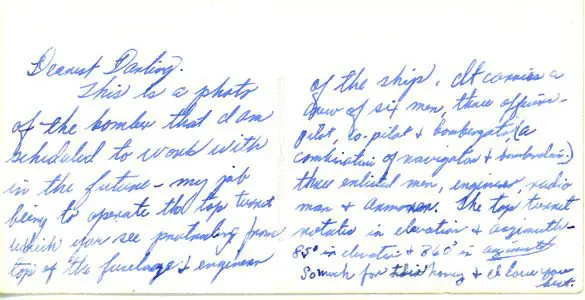 Dearest Darling.
This is a photo
of the bomber that I am
scheduled to work with
in the future - my job
being to operate the top turret
which you see protruding from
top of the fuselage & engineer
of the ship. It carries a
crew of six men, three officers -
pilot, co-pilot & bombergator (a
combination of navigator & bombardier.)
three enlisted men, engineer, radio
man & armorer. The top turret
rotates in elevation & azimuth -
85° in elevation & 360° in azimuth
So much for this honey & I love you
best.